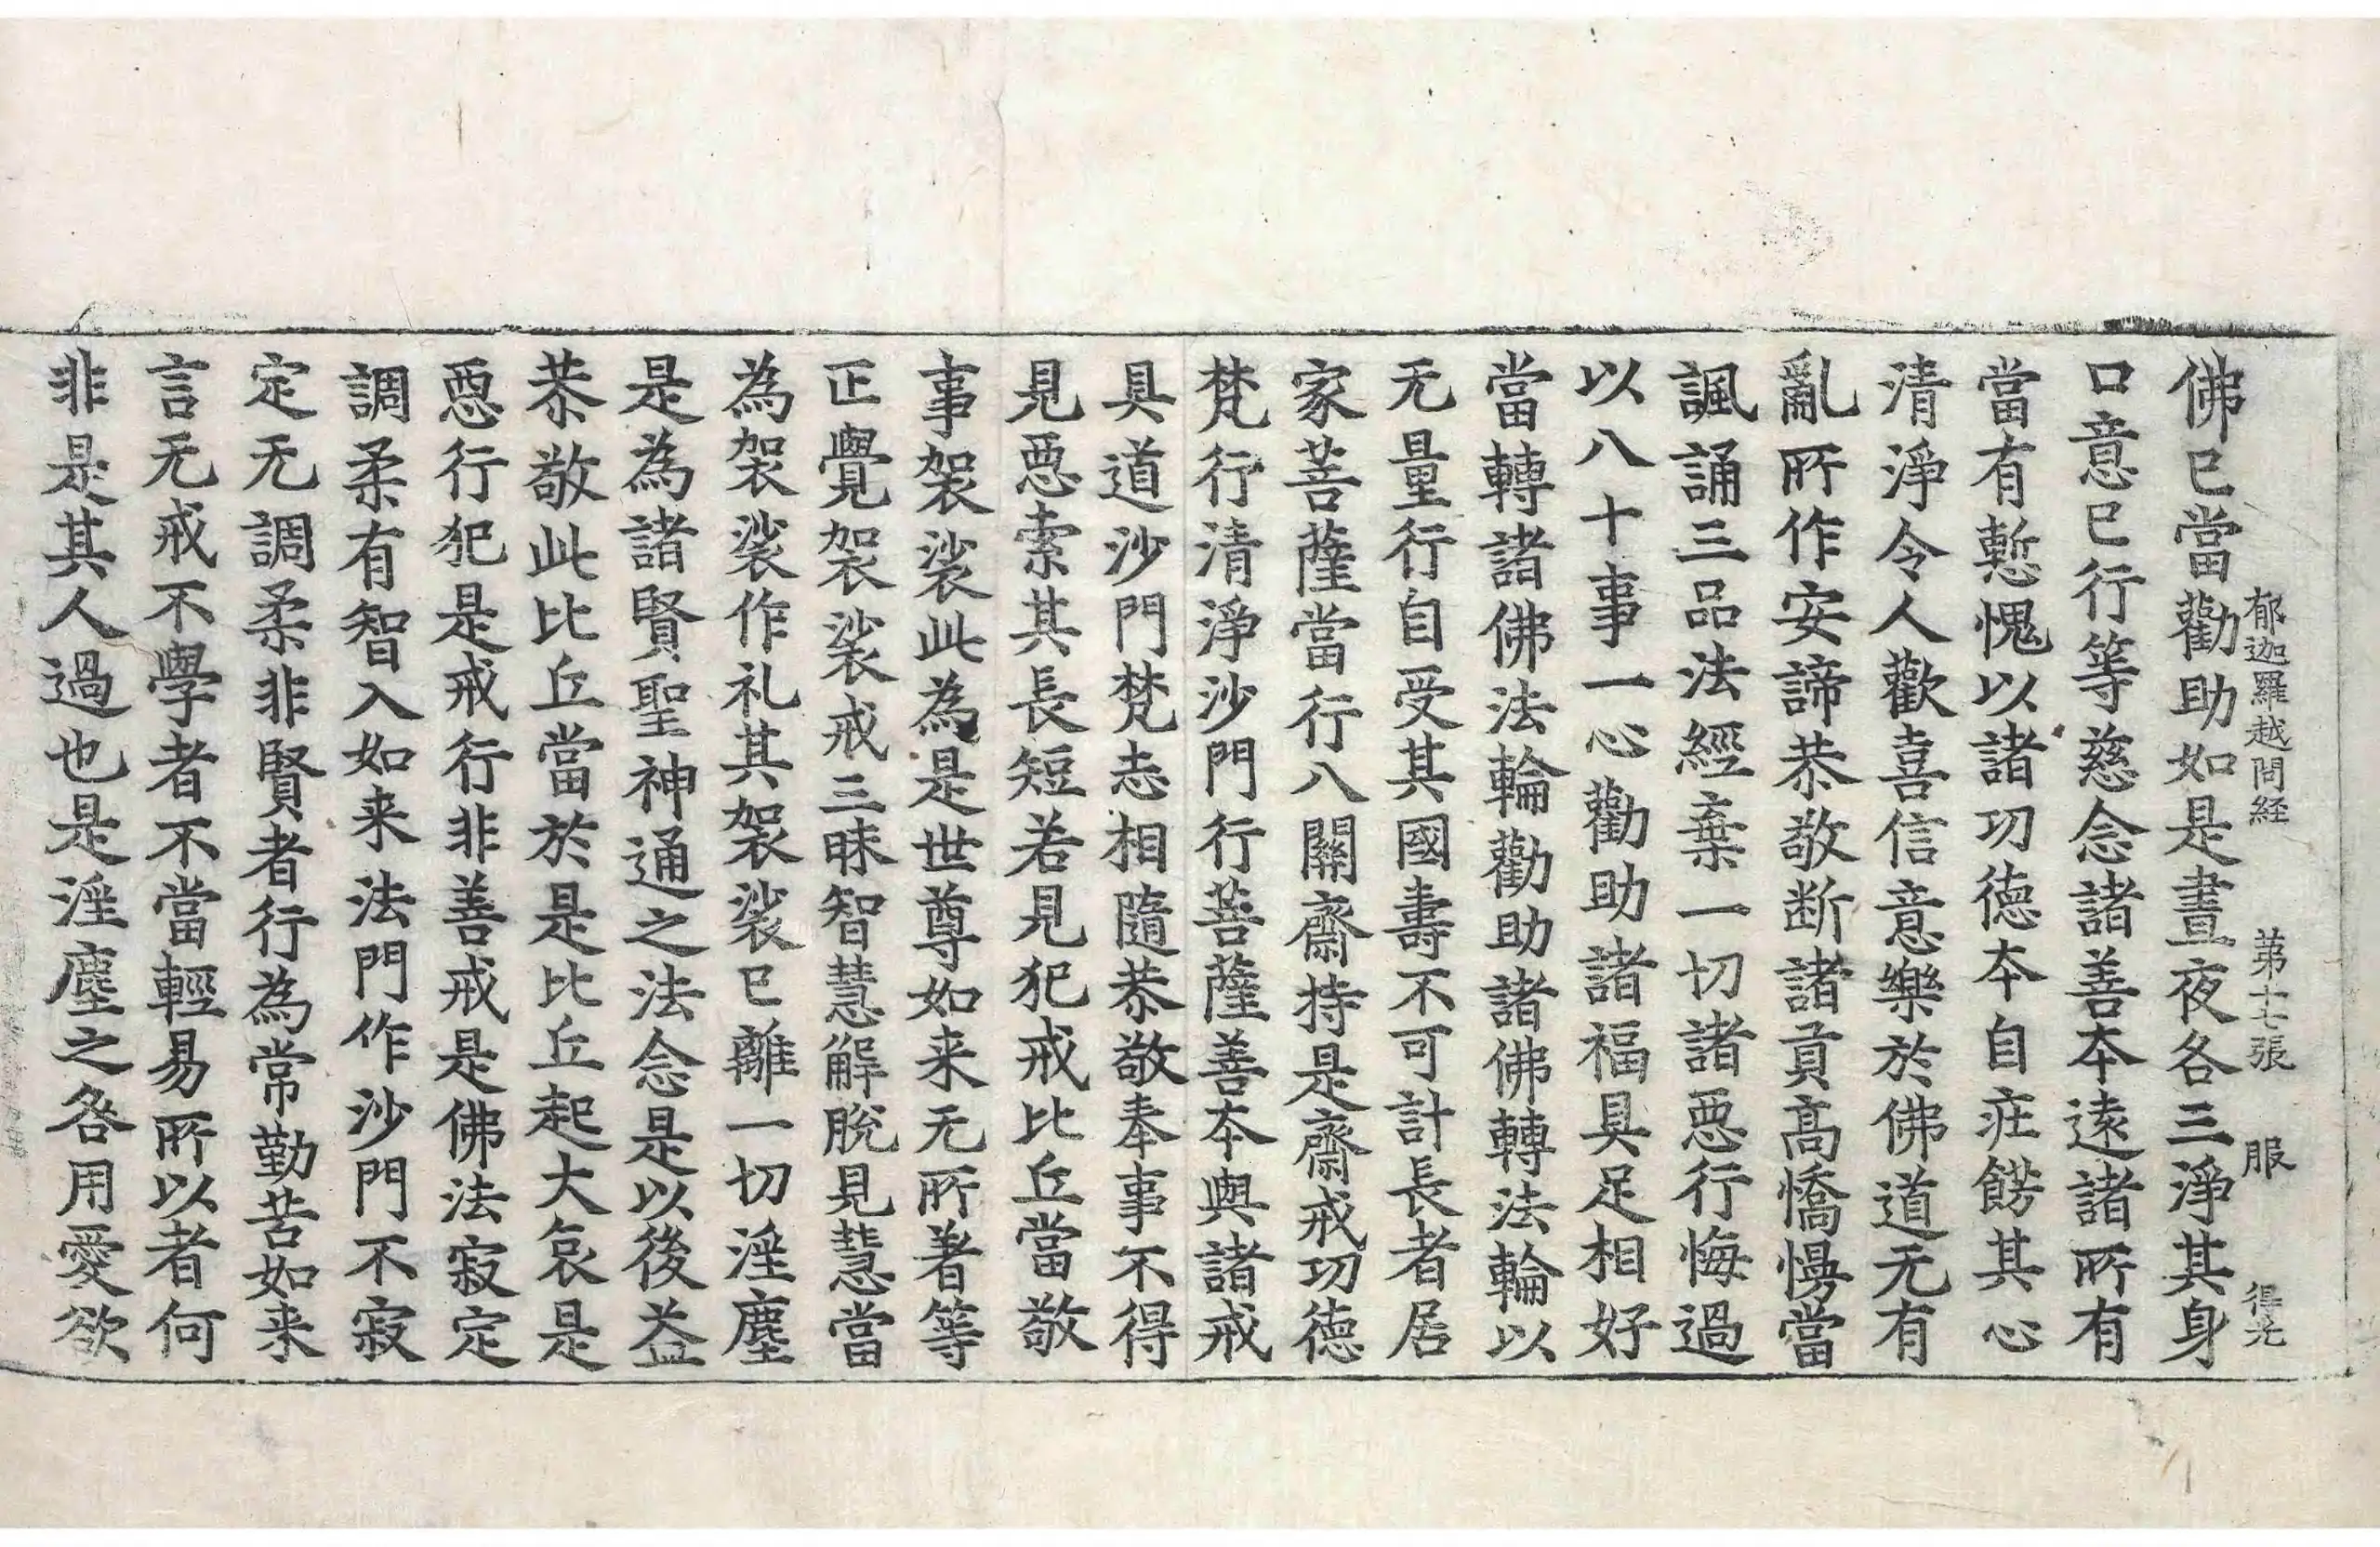 郁迦羅越問経　第十七張　服　得光
佛已當勸助如是晝夜各三淨其身
口意已行等慈念諸善本遠諸所有
當有慙愧以諸功德本自庄餝其心
清淨令人歡喜信意樂於佛道无有
亂所作安諦恭敬断諸貢高憍慢當
諷誦三品法經棄一切諸惡行悔過
以八十事一心勸助諸福具足相好
當轉諸佛法輪勸助諸佛轉法輪以
无量行自受其國壽不可計長者居
家菩薩當行八關齋持是齋戒功德
梵行清淨沙門行菩薩善本與諸戒
具道沙門梵志相隨恭敬奉事不得
見惡索其長短若見犯戒比丘當敬
事袈裟此為是世尊如来无所著等
正覺袈裟戒三昧智慧解脫見慧當
為袈裟作礼其袈裟已離一切淫塵
是為諸賢聖神通之法念是以後益
恭敬此比丘當於是比丘起大哀是
惡行犯是戒行非善戒是佛法寂定
調柔有智入如来法門作沙門不寂
定无調柔非賢者行為常勤苦如来
言无戒不學者不當輕易所以者何
非是其人過也是淫塵之咎用愛欲